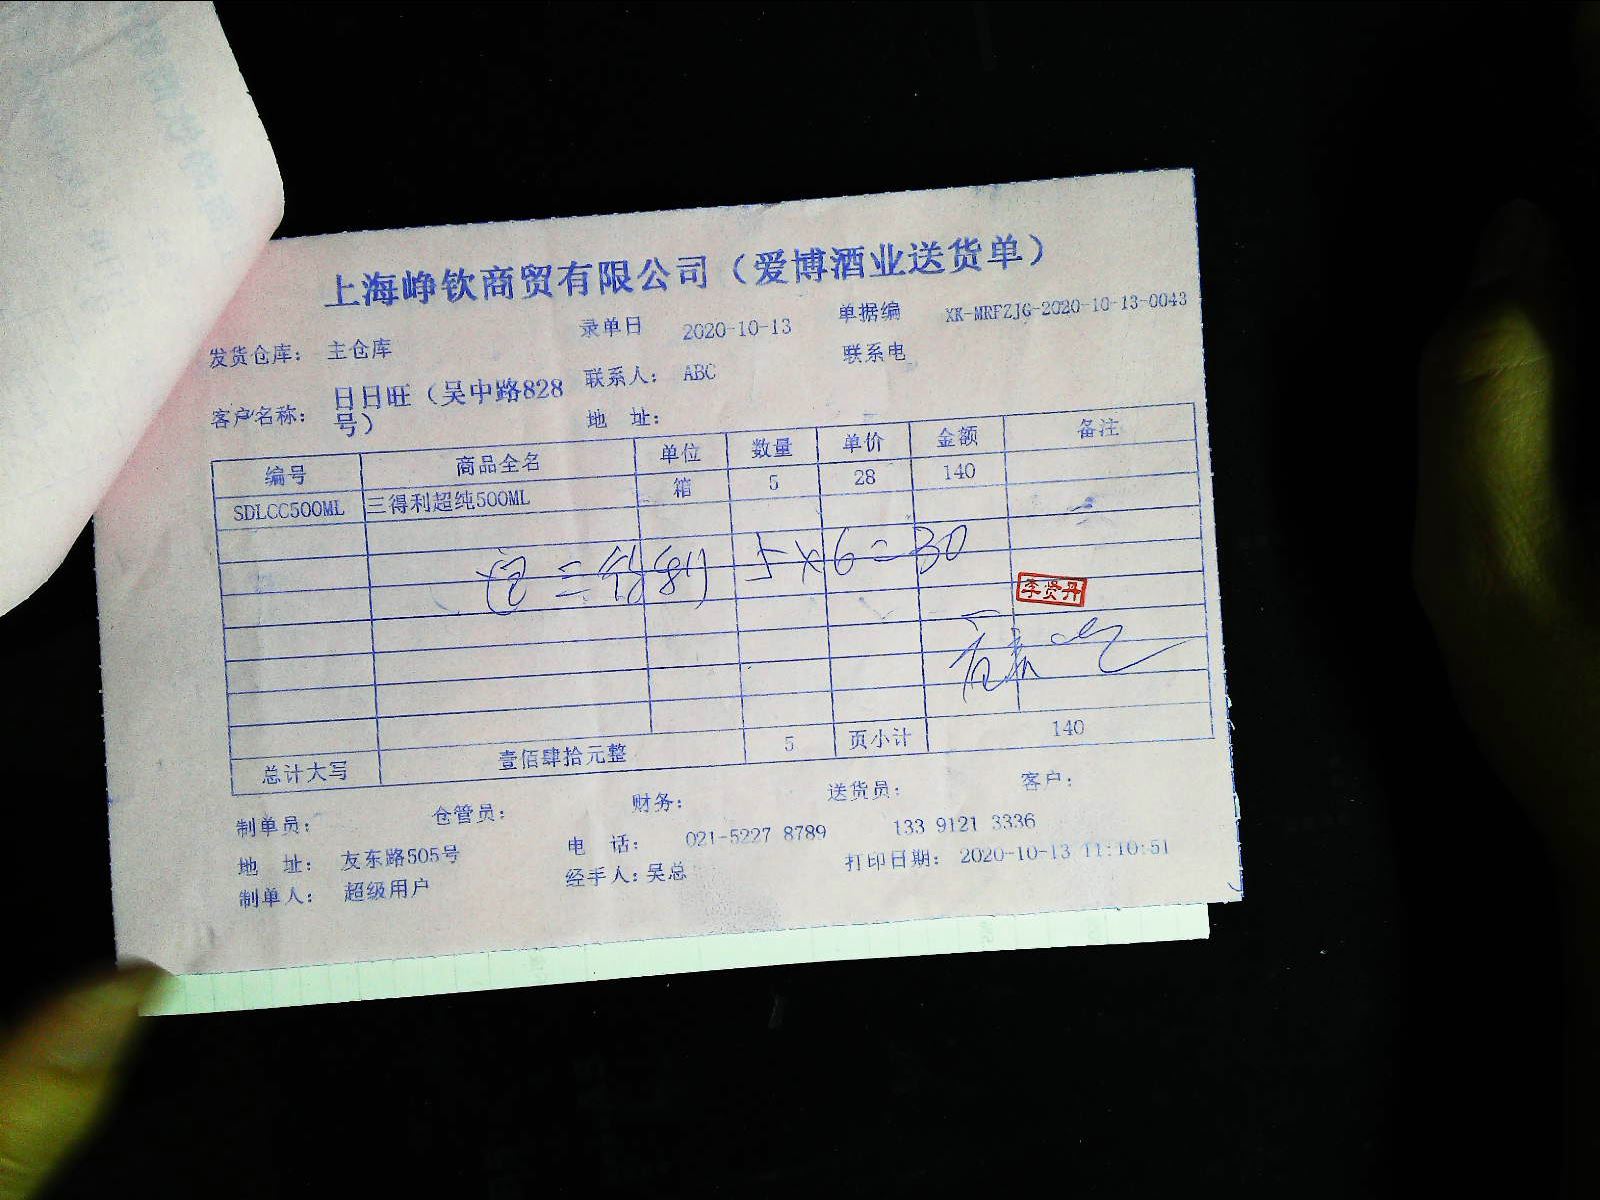 上海峥钦商贸有限公司（爱博酒业送货单）
发货仓库： 主仓库 录单日 2020-10-13 单据编 XK-MRFZJG-2020-10-13-0043
客户名称： 日日旺（吴中路828号） 联系人： ABC 联系电
地 址：
编号 商品全名 单位 数量 单价 金额 备注
SDLCC500ML 三得利超纯500ML 箱 5 28 140
三得利 5×6=30
李贤丹
总计大写 壹佰肆拾元整 5 页小计 140
制单员： 仓管员： 财务： 送货员： 客户：
地 址： 友东路505号 电 话： 021-5227 8789 133 9121 3336
制单人： 超级用户 经手人：吴总 打印日期： 2020-10-13 11:10:51